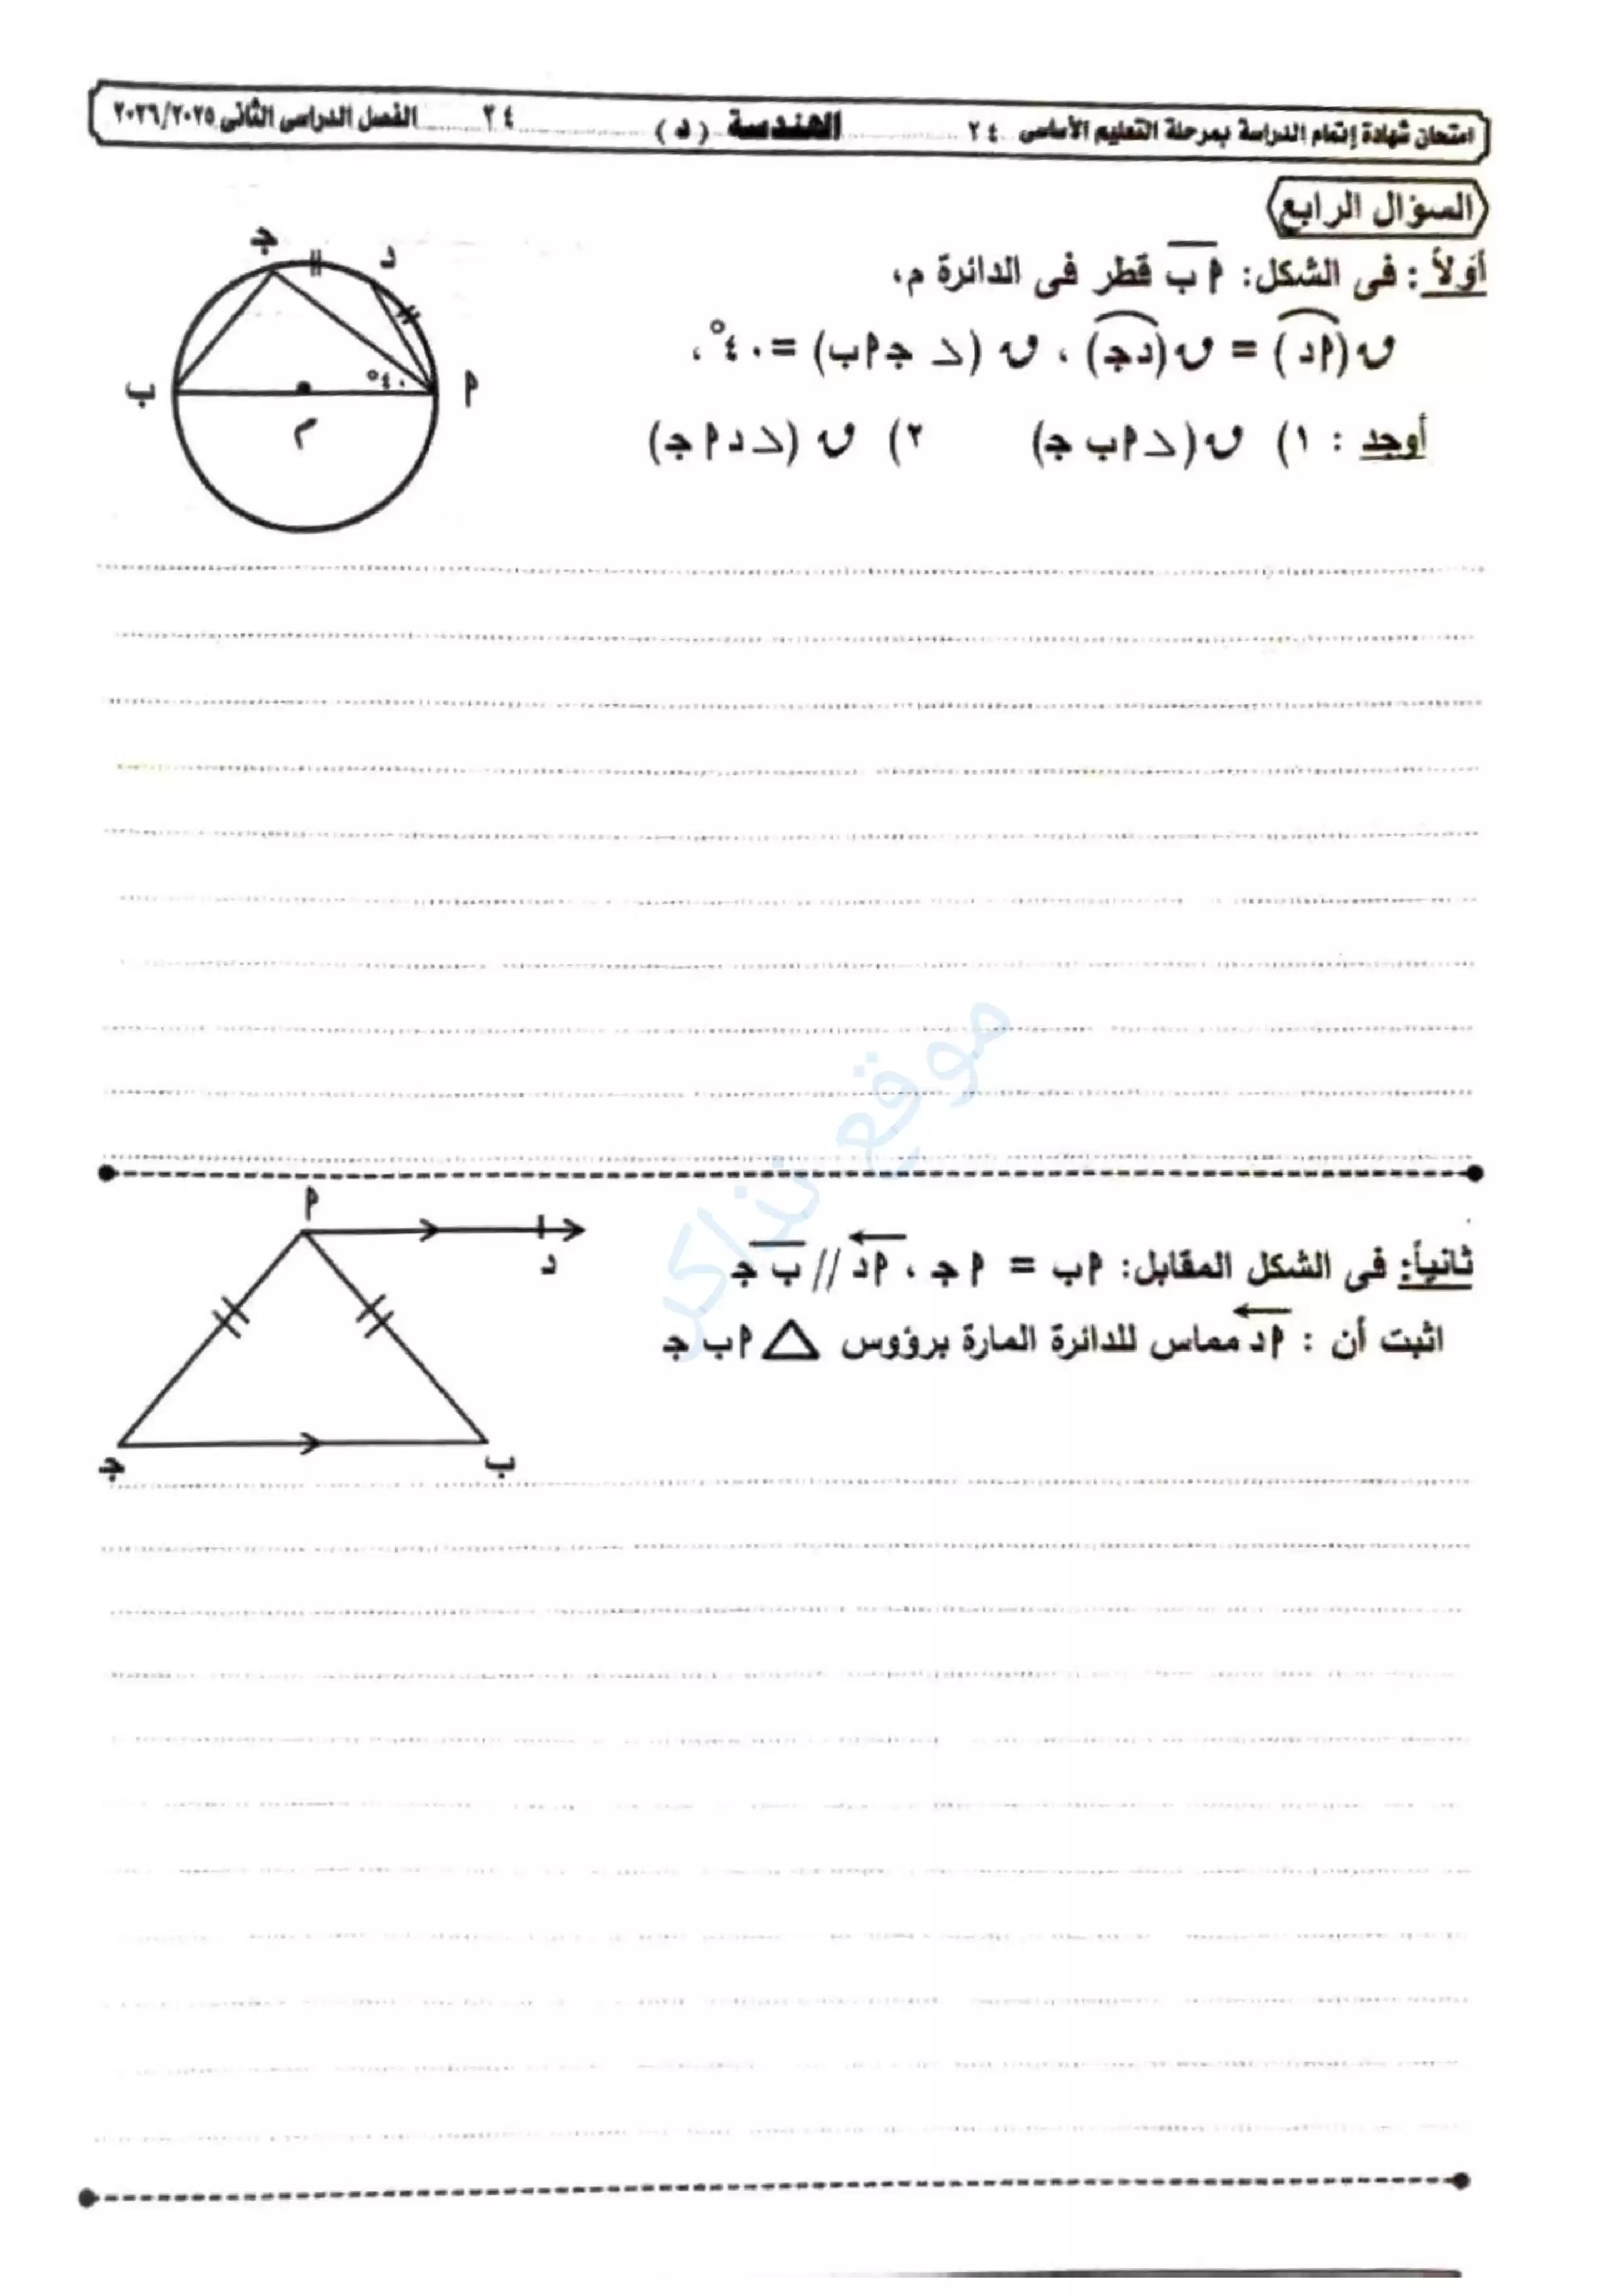 امتحان شهادة إتمام الدراسة بمرحلة التعليم الأساسى ٢٤ الهندسة (د) ٢٤ الفصل الدراسى الثانى ٢٠٢٦/٢٠٢٥
السؤال الرابع
أولاً: فى الشكل: م ب قطر فى الدائرة م،
ق(م د) = ق(د ج) ، ق(> ج م ب) = ٤٠° ،
أوجد : ١) ق(> م ب ج) ٢) ق(> د م ج)
ج
د
ب
م
٤٠°
م
موقع نذاكر
ثانياً: فى الشكل المقابل: م ب = م ج ، م د // ب ج
اثبت أن : م د مماس للدائرة المارة برؤوس △ م ب ج
م
د
ج
ب